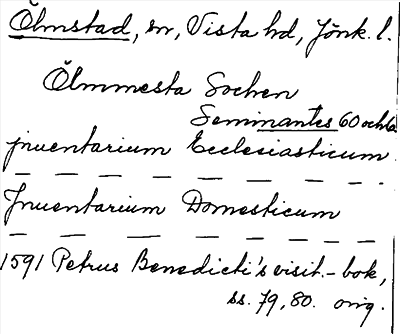 Ölmstad, sn, Vista hd, Jönk. l.
Ölmmesta Sochen
Seminantes 60 och
jnuentarium Ecclesiasticum
Jnuentarium Domesticum
1591 Petrus Benedicti's visit.-bok,
ss. 79, 80. orig.